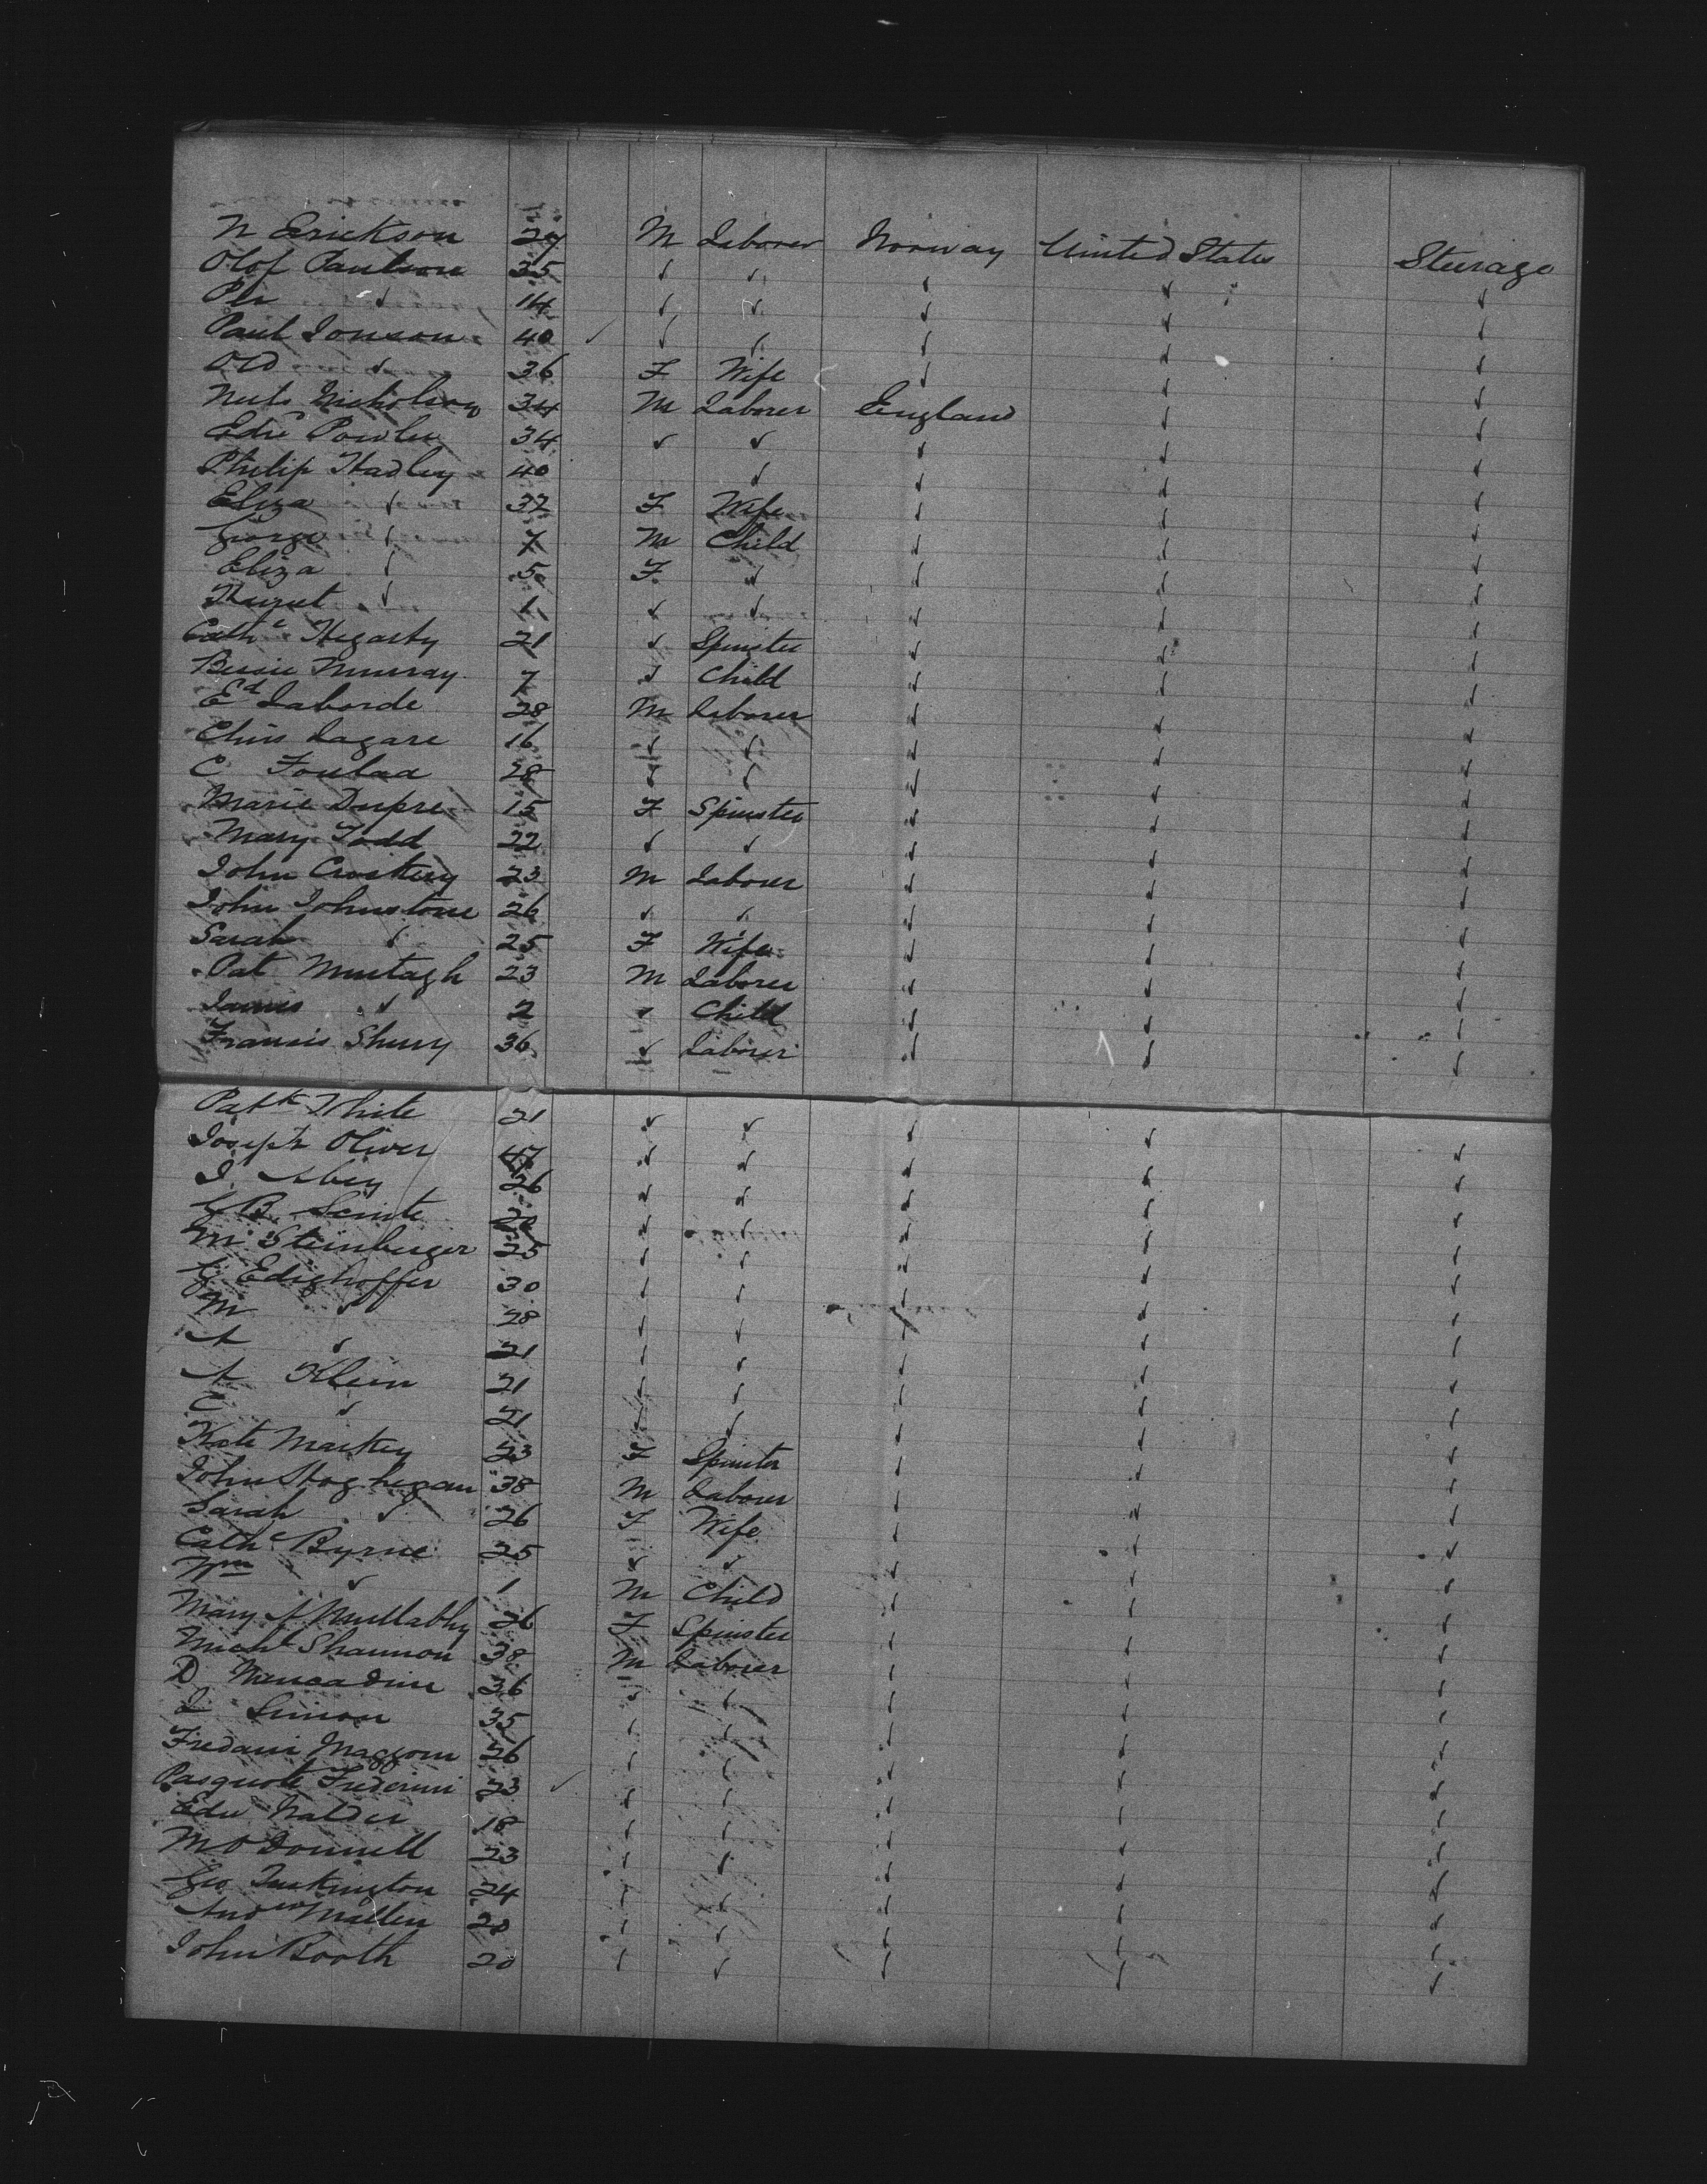 N Erickson 29 M Laborer Norway United States Steerage
Olof Paulson 35 ✓ ✓ ✓ ✓ ✓
Per ✓ 14 ✓ ✓ ✓ ✓ ✓
Paul Jonson 40 ✓ ✓ ✓ ✓ ✓ ✓
✓ 36 F Wife ✓ ✓ ✓
Nicholson 34 M Laborer England ✓ ✓
34 ✓ ✓ ✓ ✓ ✓
Philip Hadley 40 ✓ ✓ ✓ ✓
Eliza ✓ 32 F Wife ✓ ✓ ✓
George ✓ 7 M Child ✓ ✓ ✓
Eliza ✓ 5 F ✓ ✓ ✓ ✓
✓ 1 ✓ ✓ ✓ ✓ ✓
Cathe Hegarty 21 ✓ Spinster ✓ ✓ ✓
Bessie Murray 7 ✓ Child ✓ ✓ ✓
Ed Laborde 28 M Laborer ✓ ✓ ✓
Lagare 16 ✓ ✓ ✓ ✓ ✓
C 28 ✓ ✓ ✓ ✓ ✓
Marie Dupre 15 F Spinster ✓ ✓ ✓
Mary Todd 22 ✓ ✓ ✓ ✓ ✓
John Croskery 23 M Laborer ✓ ✓ ✓
John Johnstone 26 ✓ ✓ ✓ ✓ ✓
Sarah ✓ 25 F Wife ✓ ✓ ✓
Pat Murtagh 23 M Laborer ✓ ✓ ✓
James ✓ 2 ✓ Child ✓ ✓ ✓
Francis Sherry 36 ✓ Laborer ✓ ✓ ✓
Patk White 21 ✓ ✓ ✓ ✓ ✓
Joseph Oliver 47 ✓ ✓ ✓ ✓ ✓
26 ✓ ✓ ✓ ✓ ✓
✓ ✓ ✓ ✓ ✓
M Steinberger 25 ✓ ✓ ✓ ✓ ✓
G Edighoffer 30 ✓ ✓ ✓ ✓ ✓
M ✓ 28 ✓ ✓ ✓ ✓ ✓
A ✓ 21 ✓ ✓ ✓ ✓ ✓
A Klein 21 ✓ ✓ ✓ ✓ ✓
C ✓ 21 ✓ ✓ ✓ ✓ ✓
Kate Markey 23 F Spinster ✓ ✓ ✓
John 38 M Laborer ✓ ✓ ✓
Sarah ✓ 26 F Wife ✓ ✓ ✓
Cathe Byrne 25 ✓ ✓ ✓ ✓ ✓
Wm ✓ 1 M Child ✓ ✓ ✓
Mary A 26 F Spinster ✓ ✓ ✓
Michl Shannon 38 M Laborer ✓ ✓ ✓
D 36 ✓ ✓ ✓ ✓ ✓
Simon 35 ✓ ✓ ✓ ✓ ✓
26 ✓ ✓ ✓ ✓ ✓
23 ✓ ✓ ✓ ✓ ✓ ✓
Edw 18 ✓ ✓ ✓ ✓ ✓
M O'Donnell 23 ✓ ✓ ✓ ✓ ✓
Geo Turkington 24 ✓ ✓ ✓ ✓ ✓
Andw Mallen 20 ✓ ✓ ✓ ✓ ✓
John Booth 20 ✓ ✓ ✓ ✓ ✓